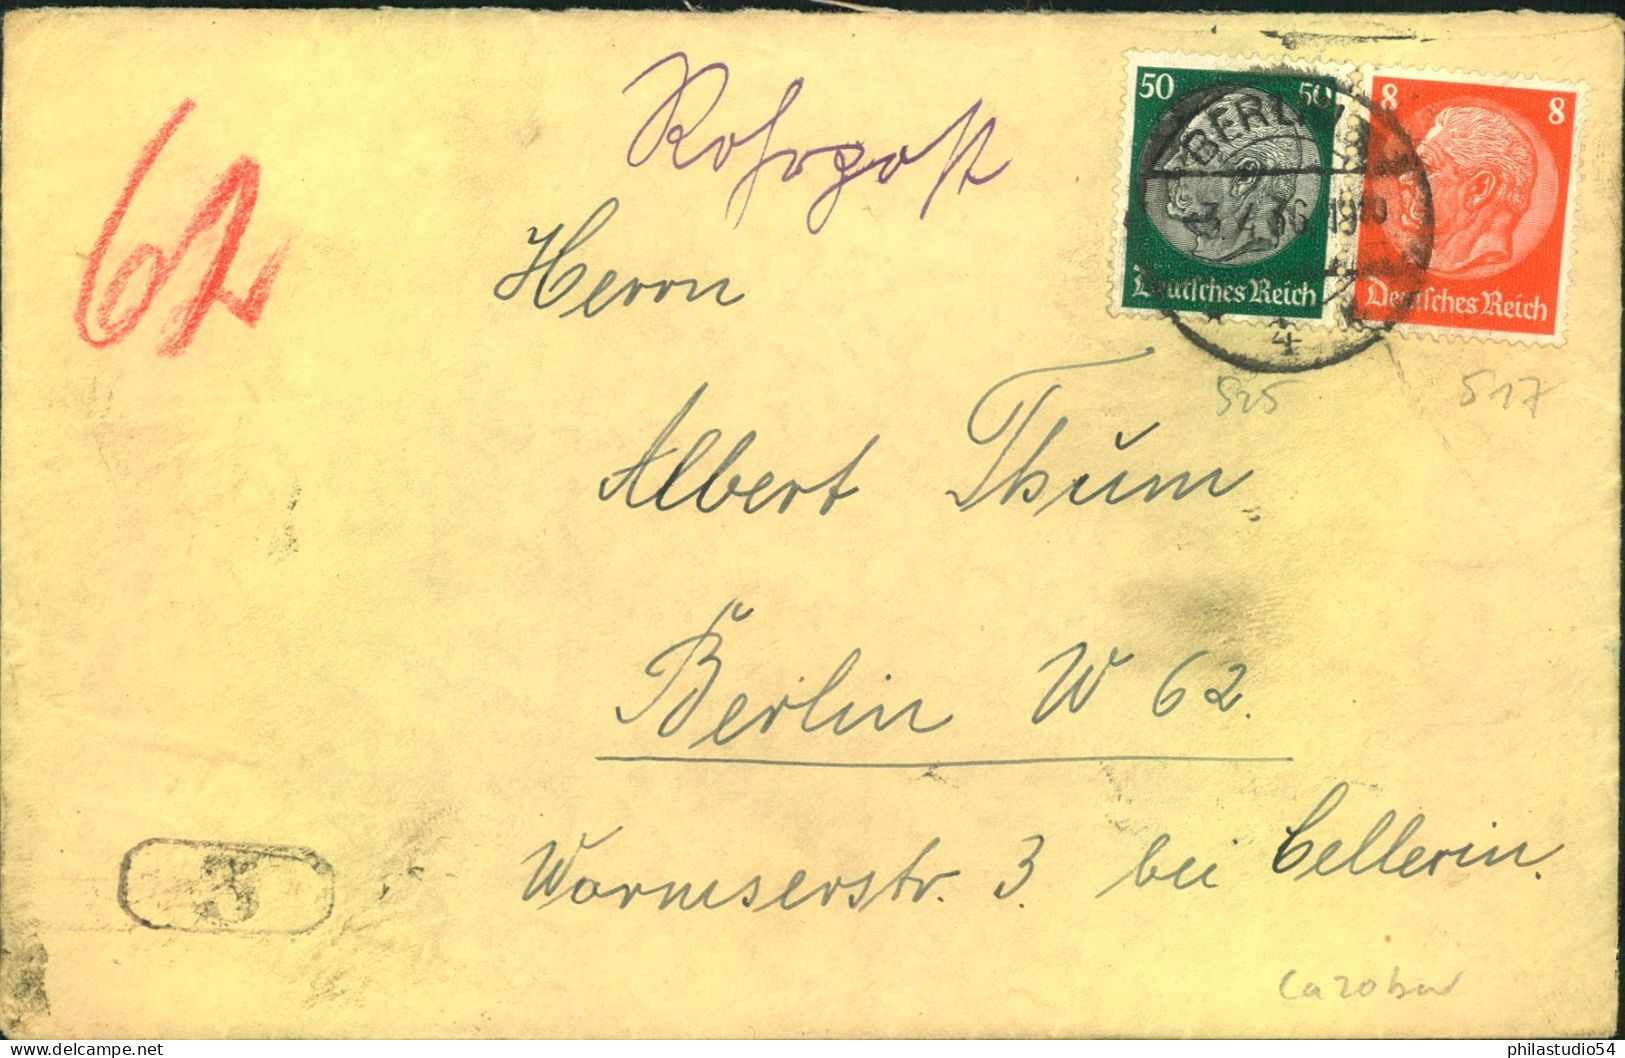 Rohrpost
62
50 50
8 8
BERLIN
-3.4.36.19
Deutsches Reich
Deutsches Reich
* 4
Herrn
525
517
Albert Thum
Berlin W 62.
Wormserstr. 3. bei Cellerin.
3
delcampe.net
philastudio54